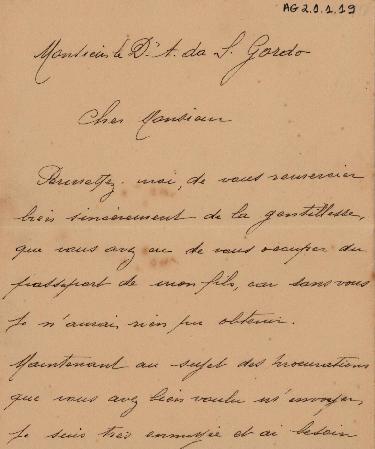 AG2.0.1.19
Monsieur le Dr A. da S. Gordo
Cher Monsieur
Permettez-moi, de vous remercier
bien sincèrement de la gentillesse,
que vous avez eu de vous occuper du
passeport de mon fils, car sans vous
je n'aurais rien pu obtenir.
Maintenant au sujet des procurations
que vous avez bien voulu m'envoyer,
je suis très ennuyée et ai besoin